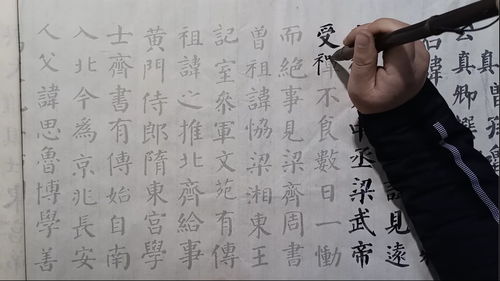 真曾孫
真卿撰
諱
見遠
中丞梁武帝
受禪不食數日一慟
而絕事見梁齊周書
曾祖諱協梁湘東王
記室參軍文苑有傳
祖諱之推北齊給事
黃門侍郎隋東宮學
士齊書有傳始自南
入北今為京兆長安
人父諱思魯博學善